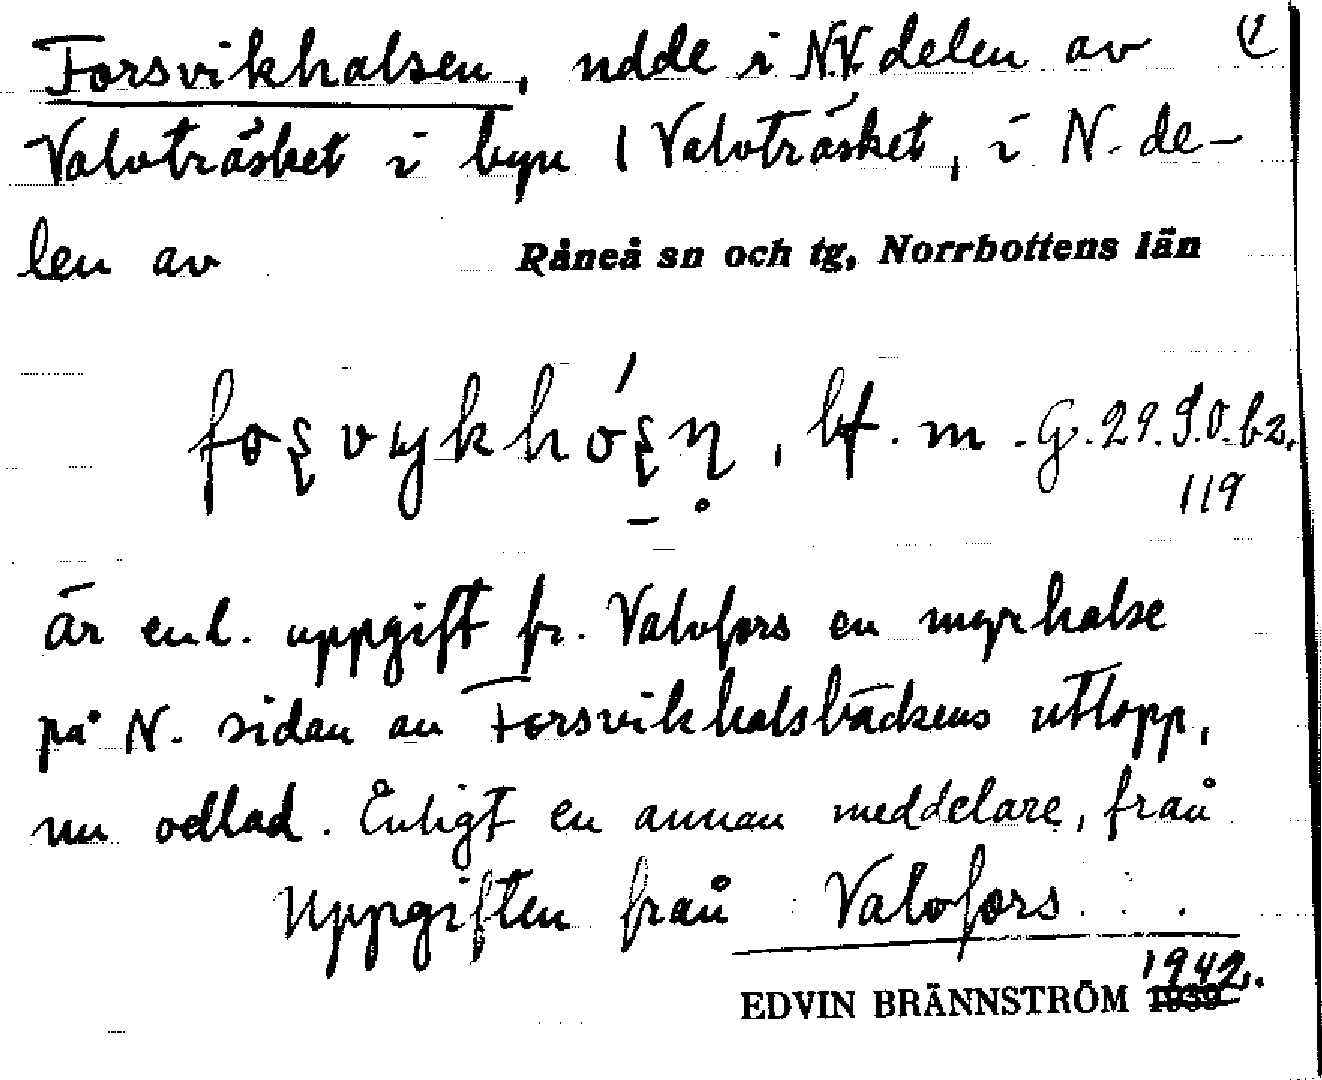 Forsvikhalsen, udde i NV. delen av
Valvträsket i byn 1 Valvträsket, i N. de-
len av Råneå sn och tg, Norrbottens län
bf. m. G. 29.
119
är enl. uppgift fr. Valvfors en myrhalse
på N. sidan av Forsvikhalsbäckens utlopp,
nu odlad. Enligt en annan meddelare, från
Uppgiften från Valvfors
EDVIN BRÄNNSTRÖM 1942.
1939